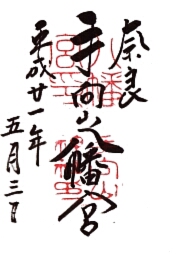 奈良
手向山八幡宮
平成廿一年
五月三日